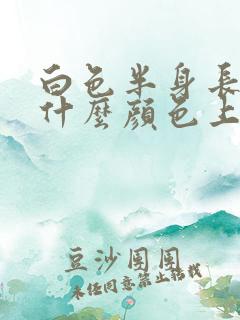 白色半身長
什麼顏色上
豆沙團團
未經同意禁止轉載